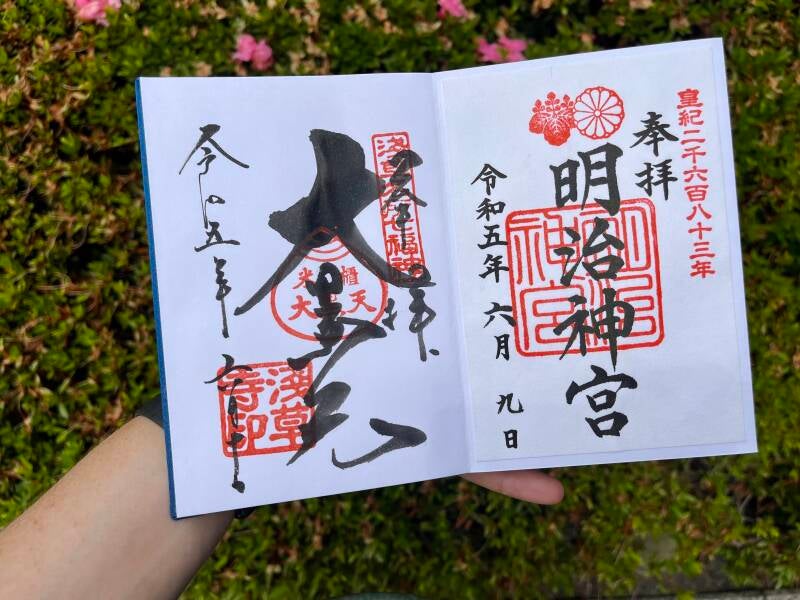 皇紀二千六百八十三年
奉拝
明治神宮
明治神宮
令和五年 六月 九日
浅草名所七福神
奉拝
大黒天
米櫃
大黒天
浅草寺印
令和五年六月十